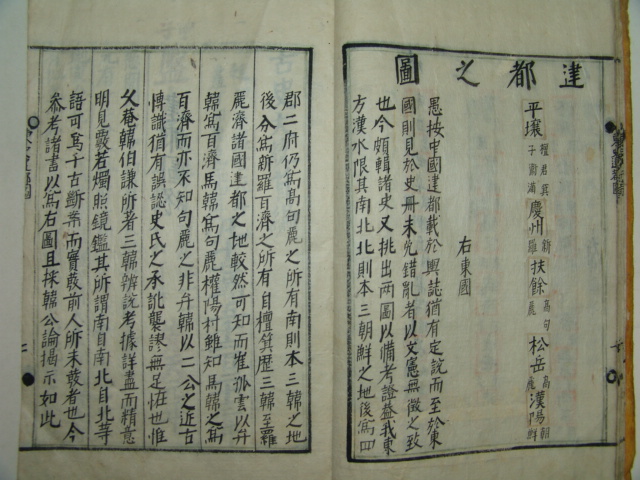 建都之圖
平壤 檀君箕子衛滿 慶州 新羅 扶餘 高句麗 松岳 高麗 漢陽 朝鮮
右東國
愚按中國建都載於輿誌猶有定說而至於東
國則見於史冊未免錯亂者以文憲無徵之致
也今頗輯諸史又挑出兩圖以備考證益我東
方漢水限其南北北則本三朝鮮之地後爲四
郡二府仍爲高句麗之所有南則本三韓之地
後分爲新羅百濟之所有自檀箕歷三韓至羅
麗濟諸國建都之地較然可知而崔孤雲以弁
韓爲百濟馬韓爲句麗權陽村雖知馬韓之爲
百濟而亦不知句麗之非弁韓以二公之近古
博識猶有誤認史氏之承訛襲謬無足怪也惟
久菴韓伯謙所者三韓辨說考據詳盡而精意
明見覈若燭照鏡鑑其所謂南自南北自北等
語可爲千古斷案而實發前人所未發者也今
參考諸書以爲右圖且採韓公論揭示如此